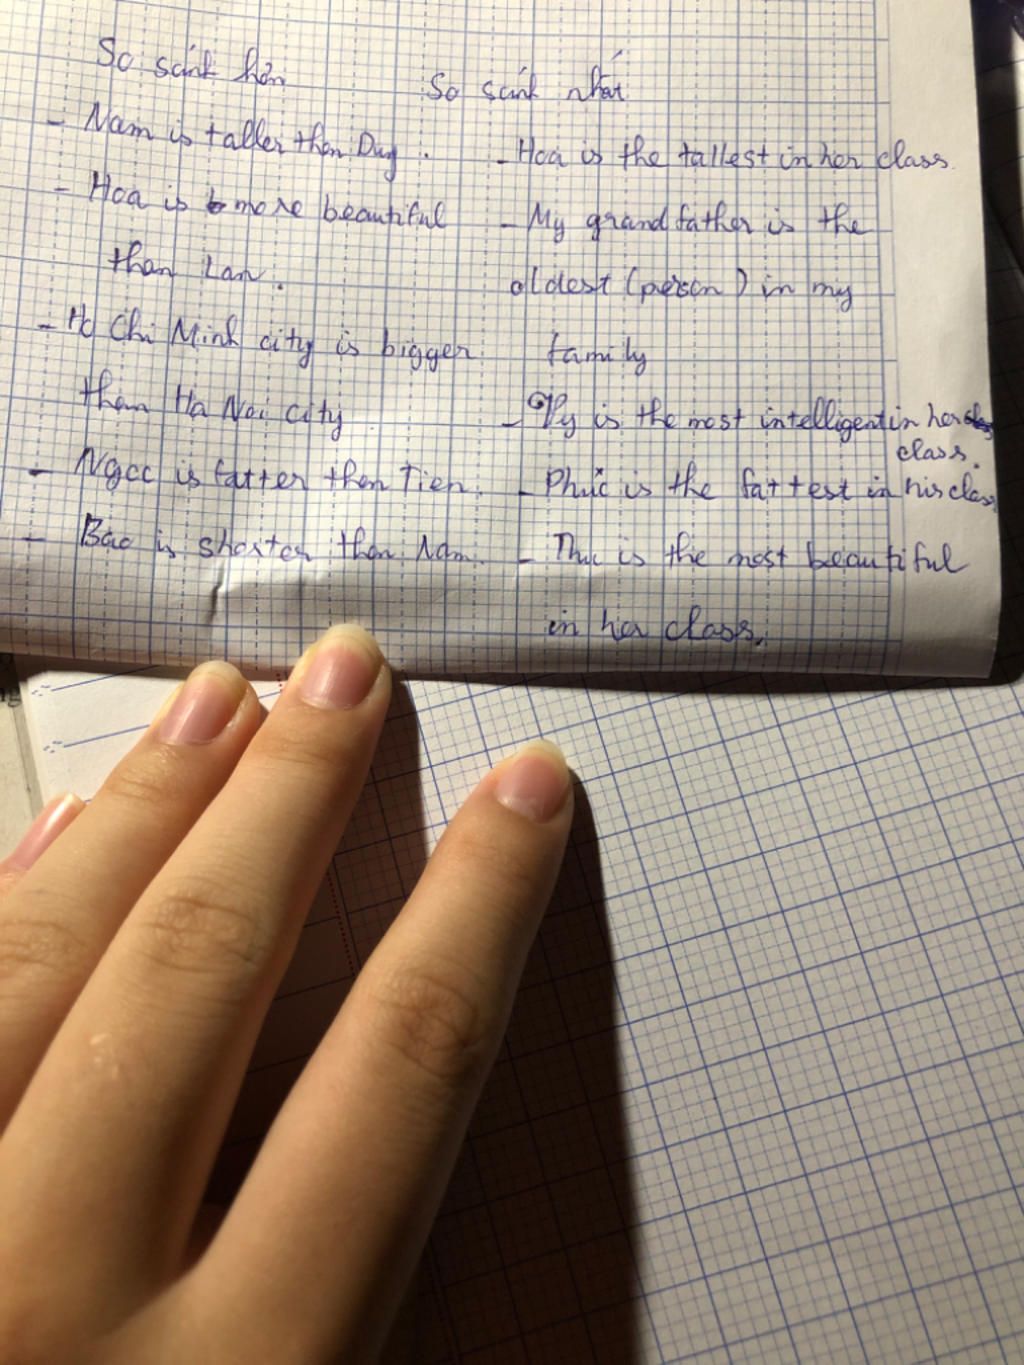 So sánh hơn
- Nam is taller than Duy.
- Hoa is more beautiful
than Lan.
- Ho Chi Minh city is bigger
than Ha Noi city.
- Ngoc is fatter than Tien.
- Bao is shorter than Nam.
So sánh nhất
- Hoa is the tallest in her class.
- My grandfather is the
oldest (person) in my
family
- Vy is the most intelligent in her
class.
- Phúc is the fattest in his class
- Thu is the most beautiful
in her class.